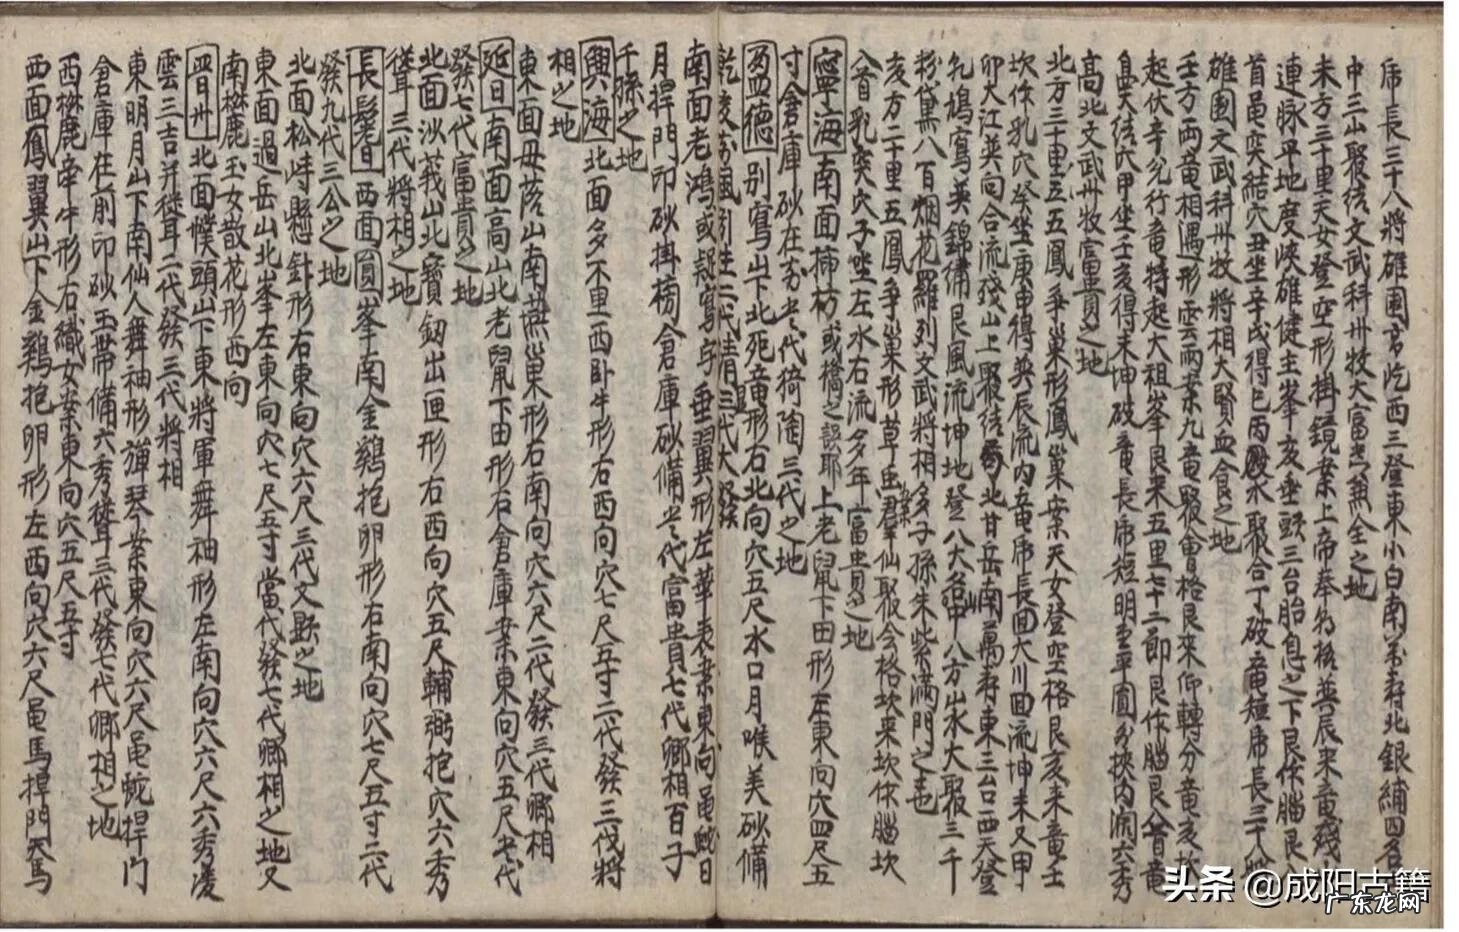 席長三十八將雄圃京屹西三登東小白南萬寿北銀繡四名
中三山聚結文武科卅牧大富无兼全之地
未方三十里天女登空形掛鏡案上帝奉
連脉平地度峽雄健主峯亥垂頭三台胎息之下艮作腦艮
首黾突結穴丑坐辛戌得巳丙水聚合丁破竜短席長三十八將
雄圃文武科卅牧將相大賢血食之地
壬方兩竜相遇形雲雨案九竜聚會格艮來仰轉分竜亥坎
起伏辛兊行竜特起大祖峯艮来五里七十二節艮作腦艮入首竜
息突結穴甲坐壬亥得未坤破竜長席短明堂平圓多挾內洞六秀
高北文武卅牧富貴之地
北方三十里五鳳争巢形鳳巢案天女登空格艮亥来竜壬
坎作乳穴癸坐庚申得巽辰流內竜席長回大川回流坤未又甲
卯大江巽向合流殘山上聚結北甘岳南萬寿東三台西天登
乳鳩寫英錦繡艮風流坤地登八大名山甲八方山水大聚三千
粉黛八百烟花羅列文武將相多子孫朱紫滿門之地
亥方二十里五鳳争巢形草虫案群仙聚会格坎来坎作腦坎
入首乳突穴子坐左水右流多年富貴之地
寧海南面柿枋或橋之誤耶上老鼠下田形左東向穴四尺五
寸倉庫砂在前当代猗陶三代之地
孟德别寫山下北死竜形右北向穴五尺水口月喉美砂備
南面老鴻或疑寫字垂翼形左華表案東向黾蛇日
月捍門印砂掛榜倉庫砂備当代富貴七代卿相百子
千孫之地
興海北面多不里西卧牛形右西向穴七尺五寸二代發三代將
相之地
東面母蔭山南燕巢形右南向穴六尺二代發三代卿相
延日南面高山北老鼠下田形右倉庫案東向穴五尺当代
發七代富貴之地
北面沙莪山北寶劒出匣形右西向穴五尺輔弼抱穴六秀
聳三代將相之地
長鬐西面圓峯南金鷄抱卵形右南向穴七尺五寸二代
發九代三公之地
北面松峙懸針形右東向穴六尺三代文顯之地
東面過岳山北峯左東向穴七尺五寸當代發七代卿相之地又
南麻鹿玉女散花形西向
晋州北面幞頭山下東將軍舞袖形左南向穴六尺六秀凌
雲三吉并聳二代發三代將相
東明月山下南仙人舞袖形彈琴案東向穴六尺黾蛇捍门
倉庫在前印砂玉帶備六秀聳三代發七代卿相之地
西麻鹿牵牛形右織女案東向穴五尺五寸
西面鳳翼山下金鷄抱卵形左西向穴六尺黾馬捍門天馬
头条 @成阳古籍
广东龙网